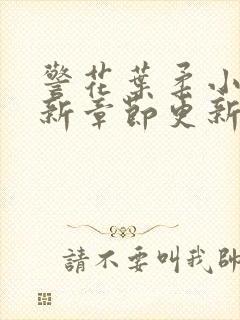 警花葉柔小
新章節更新
請不要叫我帥